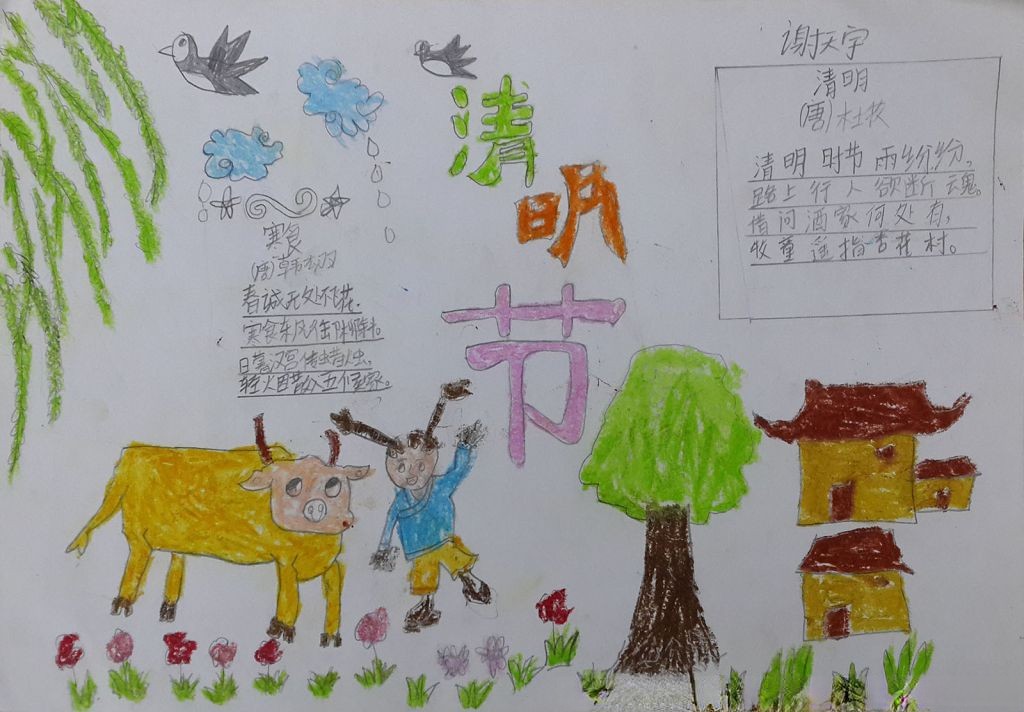 清
明
节
谢天宇
清明
(唐)杜牧
清明时节雨纷纷,
路上行人欲断魂。
借问酒家何处有,
牧童遥指杏花村。
寒食
(唐)韩翃
春城无处不飞花.
寒食东风御柳斜。
日暮汉宫传蜡烛,
轻烟散入五侯家。